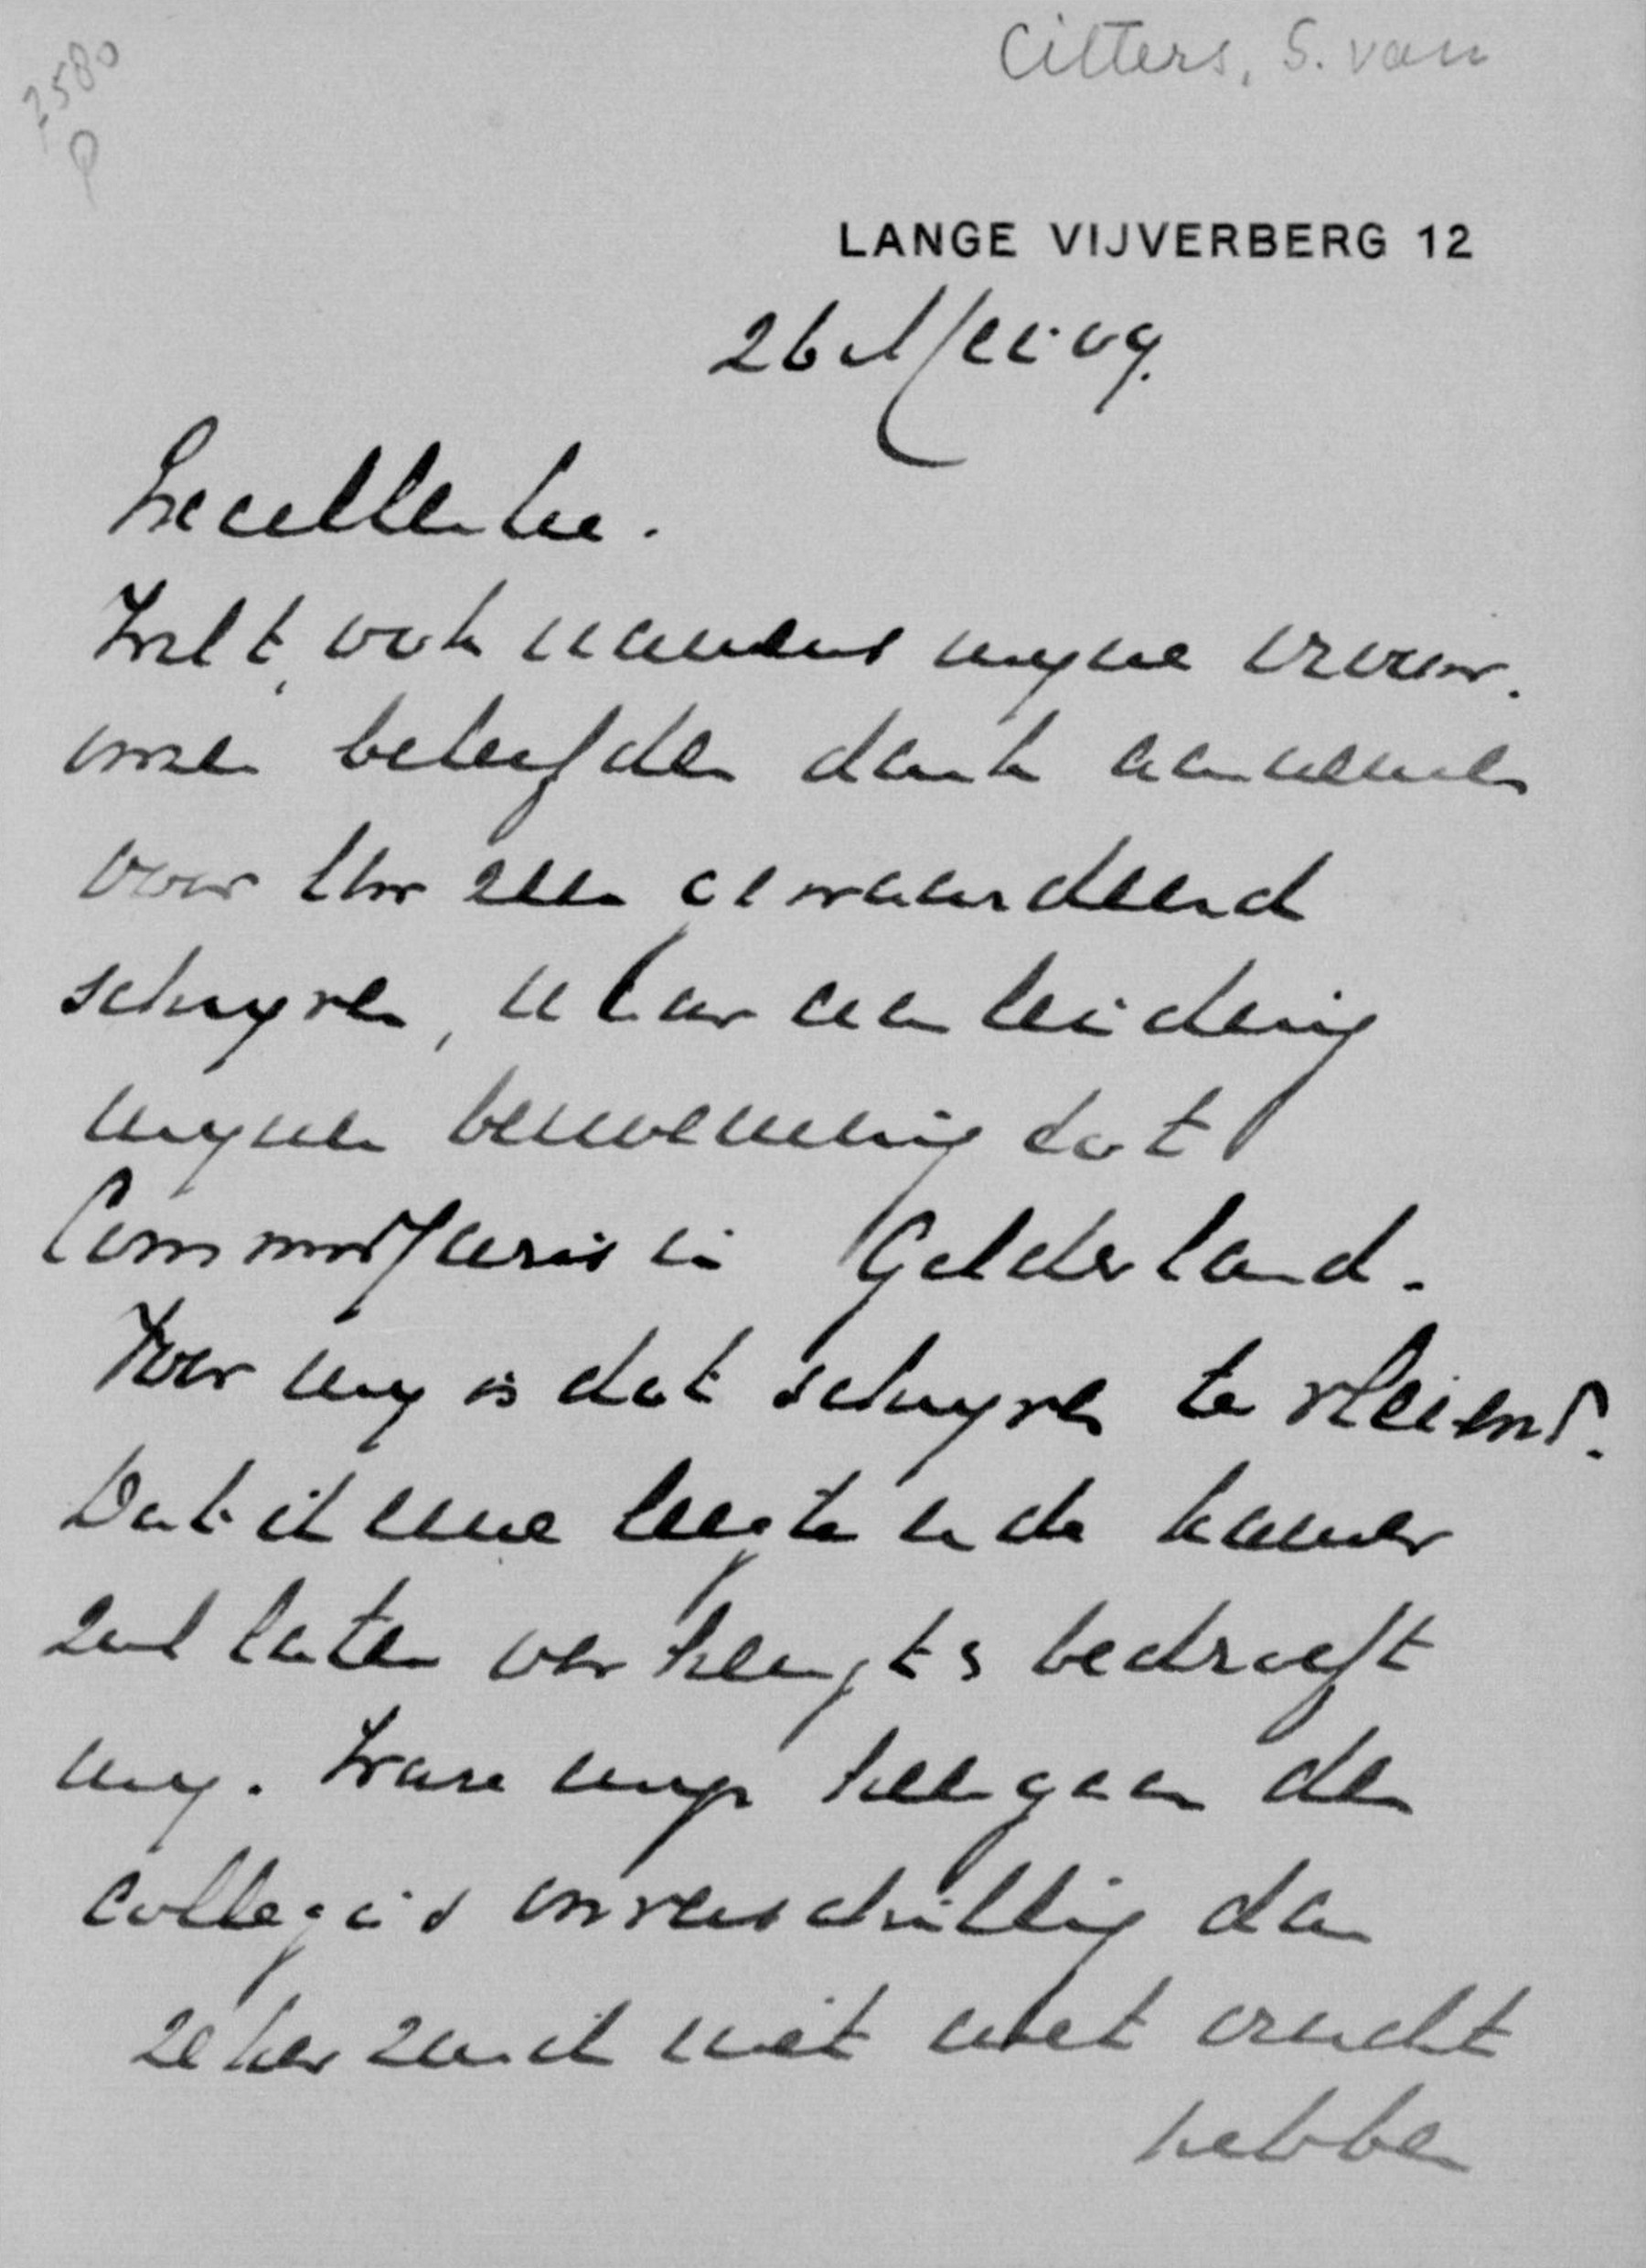 Citters, S. van
7580
P
LANGE VIJVERBERG 12
26 Mei 09.
Excellentie.
Wilt, ook namens myne vrouw.
onzen beleefden dank aannemen
voor Uw zeer gewaardeerd
schryven, naar aanleiding
myner benoeming tot
Commissaris in Gelderland.
Voor my is dat schryven te vleiend.
Dat ik eene leegte in de kamer
zal laten
bedroeft
my. Ware myn heengaan den
collega's onverschillig dan
zeker zou ik niet met vrucht
hebben